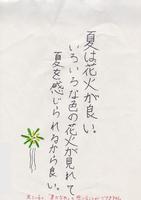 夏は花火が良い。
いろいろな色の花火が見れて
夏を感じられるから良い。